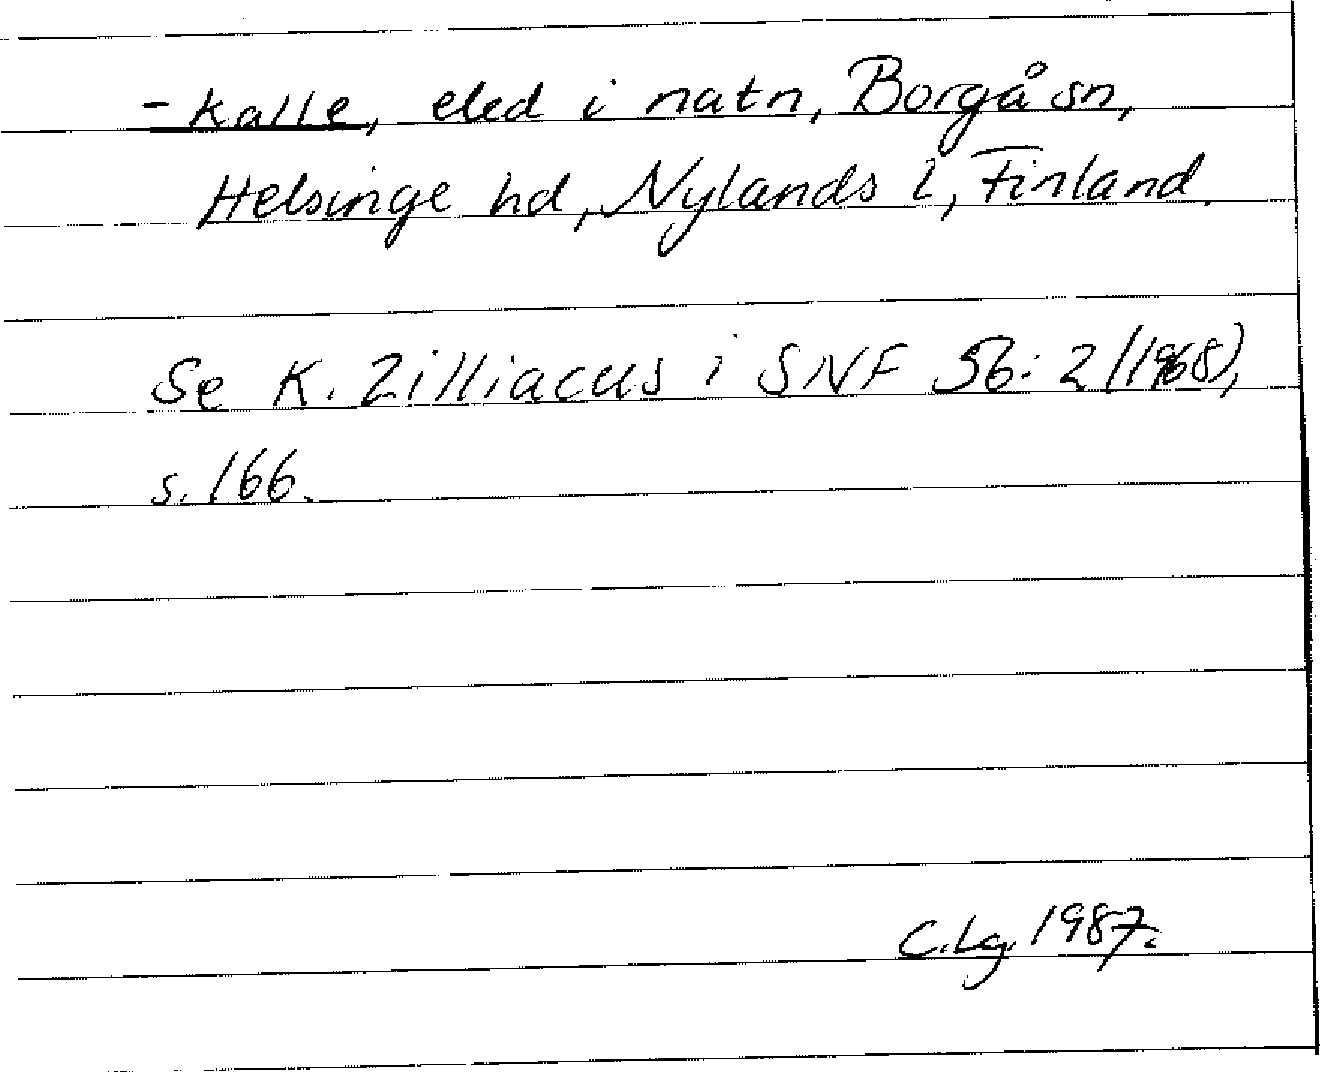 - kalle, eled i natn, Borgå sn,
Helsinge hd, Nylands l, Finland.
Se K. Zilliacus i SNF 56:2 (1968),
s. 166.
C.Lg. 1987.